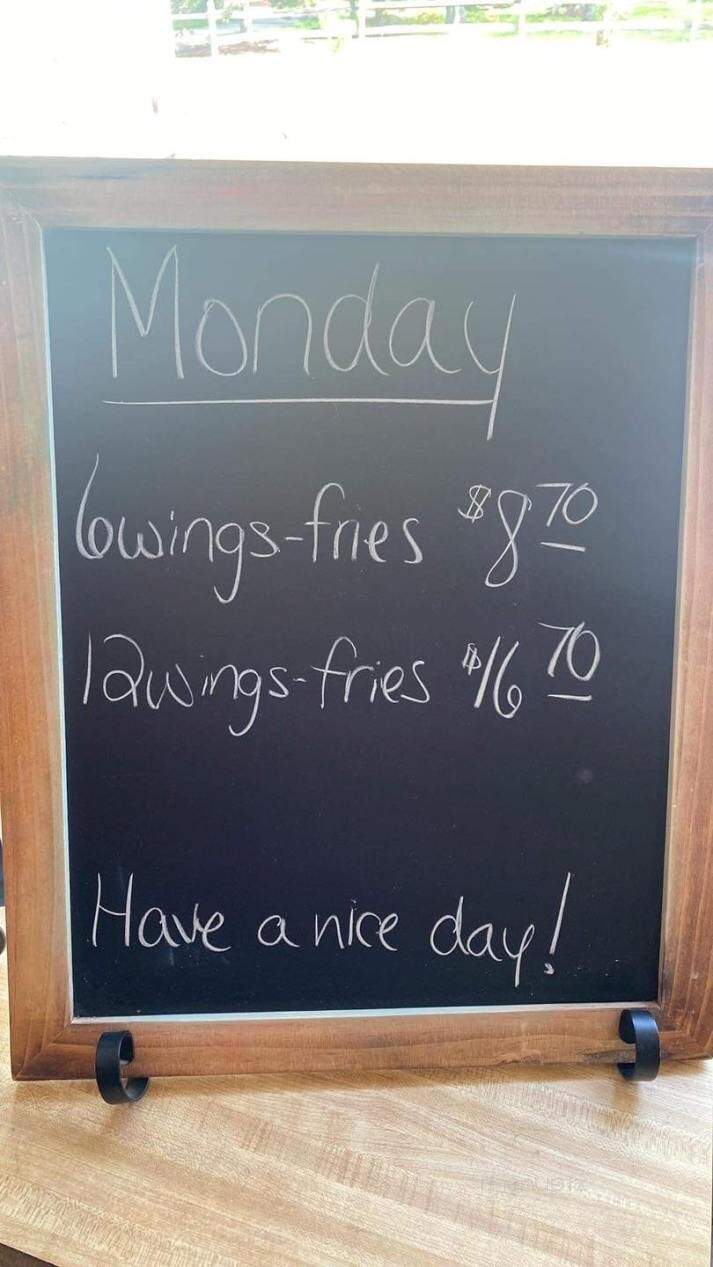 Monday
6wings-fries $8 70
12wings-fries $16 70
Have a nice day!